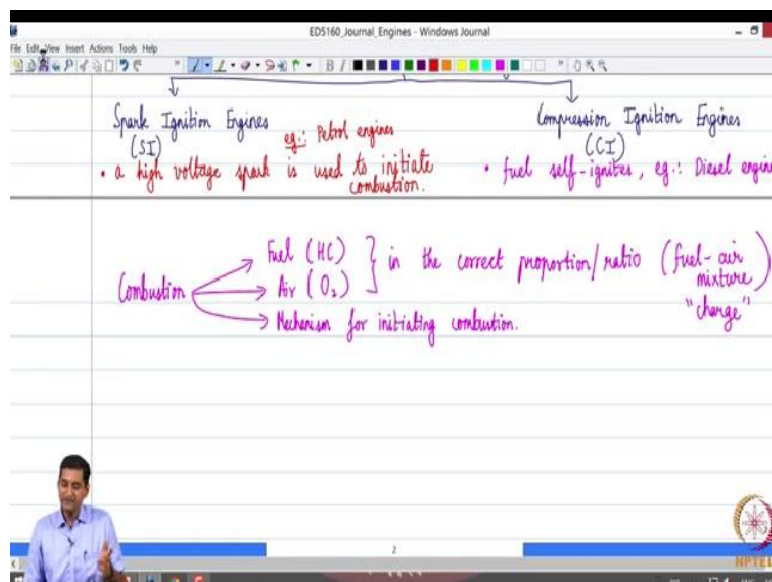 ED5160_Journal_Engines - Windows Journal
File Edit View Insert Actions Tools Help
B I
Spark Ignition Engines
(SI)
eg.: Petrol engines
• a high voltage spark is used to initiate
combustion.
Compression Ignition Engines
(CI)
• fuel self-ignites, eg.: Diesel engine
Combustion
Fuel (HC)
Air (O2)
} in the correct proportion/ratio (fuel-air
mixture)
"charge"
Mechanism for initiating combustion.
2
NPTEL